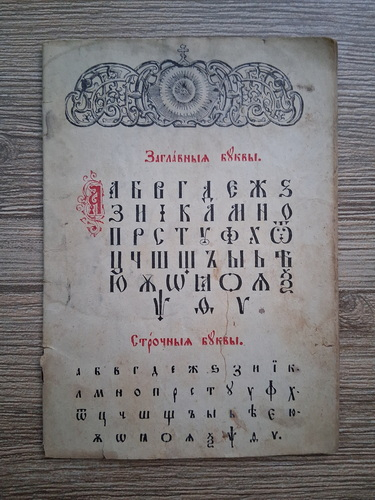 Загла́вныѧ бꙋквы.
А А Б В Г Д Е Ж Ѕ
З И І К Л М Н О
П Р С Т Ꙋ Ф Х Ѿ
Ц Ч Ш Щ Ъ Ы Ь Ѣ
Ю Ѫ Ѡ Ꙗ Ѻ Ѧ Ѯ
Ѱ Ѳ Ѵ.
Стро́чныѧ бꙋквы.
а б в г д е ж ѕ з и ї к
л м н о п р с т ꙋ у ф х
ѿ ц ч ш щ ъ ы ь ѣ є ю
ѫ ѡ ꙗ ѻ ѧ ѯ ѱ ѳ ѵ.